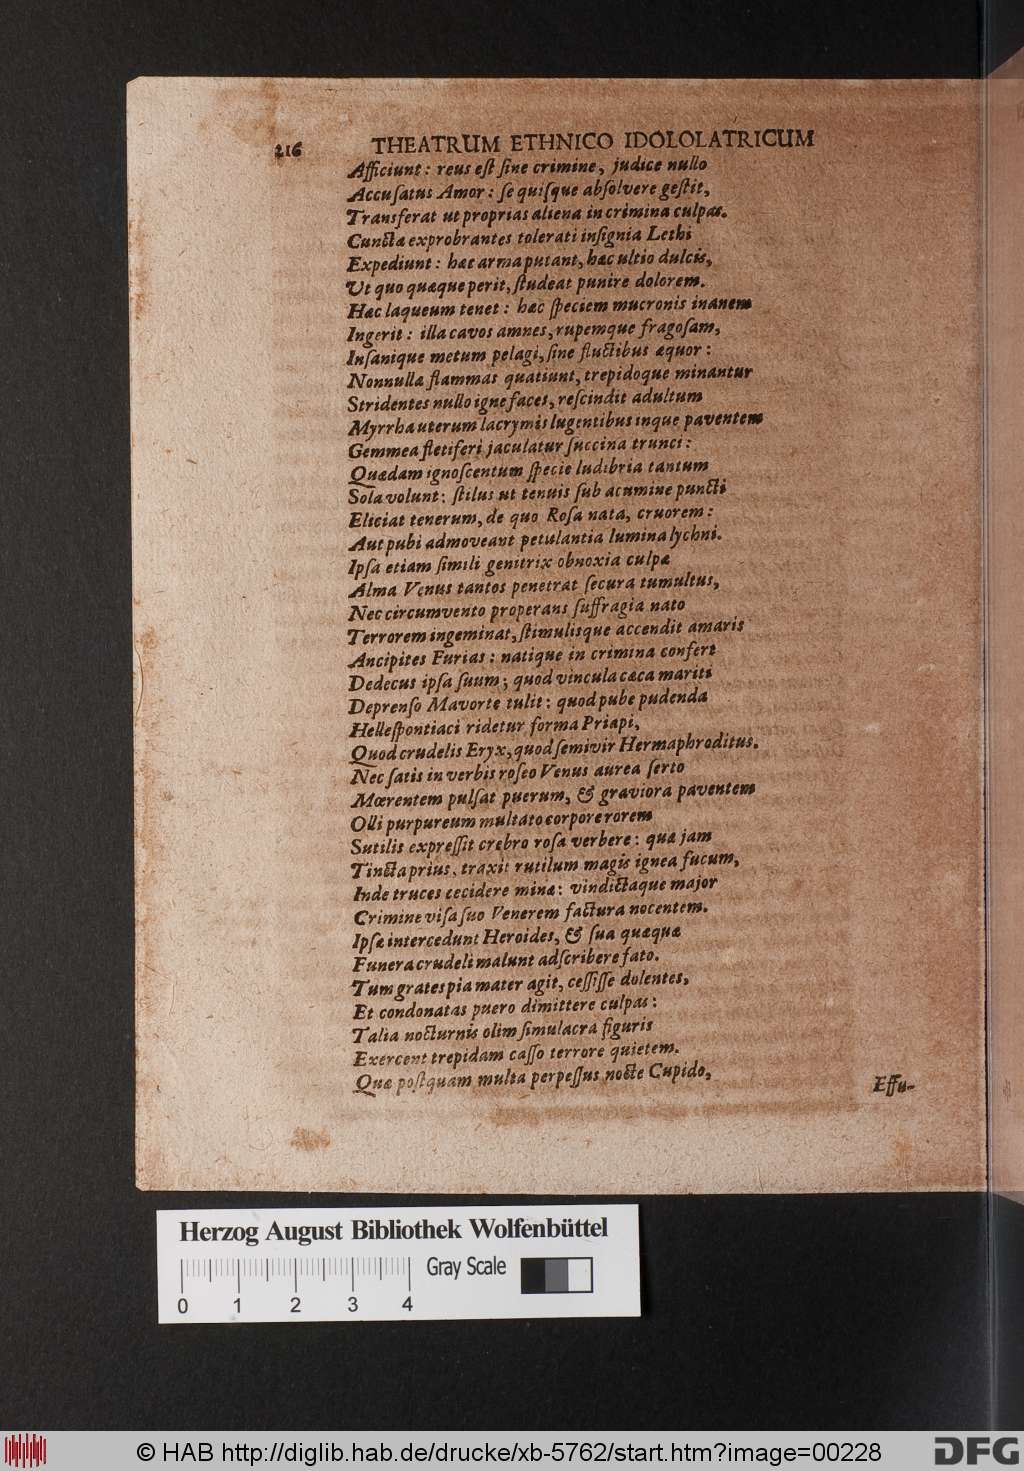 216 THEATRUM ETHNICO IDOLOLATRICUM
Afficiunt: reus eſt ſine crimine, judice nullo
Accuſatus Amor: ſe quiſque abſolvere geſtit,
Transferat ut proprias aliena in crimina culpas.
Cuncta exprobrantes tolerati inſignia Lethi
Expediunt: hæc arma putant, hæc ultio dulcis,
Ut quo quæque perit, ſtudeat punire dolorem.
Hæc laqueum tenet: hæc ſpeciem mucronis inanem
Ingerit: illa cavos amnes, rupemque fragoſam,
Inſanique metum pelagi, ſine fluctibus æquor:
Nonnulla flammas quatiunt, trepidoque minantur
Stridentes nullo igne faces, reſcindit adultum
Myrrha uterum lacrymis lugentibus inque paventem
Gemmea fletiferi jaculatur ſuccina trunci:
Quædam ignoſcentum ſpecie ludibria tantum
Sola volunt: ſtilus ut tenuis ſub acumine puncti
Eliciat tenerum, de quo Roſa nata, cruorem:
Aut pubi admoveant petulantia lumina lychni.
Ipſa etiam ſimili genitrix obnoxia culpæ
Alma Venus tantos penetrat ſecura tumultus,
Nec circumvento properans ſuffragia nato
Terrorem ingeminat, ſtimulisque accendit amaris
Ancipites Furias: natique in crimina confert
Dedecus ipſa ſuum; quod vincula cæca mariti
Deprenſo Mavorte tulit: quod pube pudenda
Helleſpontiaci ridetur forma Priapi,
Quod crudelis Eryx, quod ſemivir Hermaphroditus.
Nec ſatis in verbis roſeo Venus aurea ſerto
Mœrentem pulſat puerum, & graviora paventem
Olli purpureum multato corpore rorem
Sutilis expreſſit crebro roſa verbere: quæ jam
Tincta prius, traxit rutilum magis ignea fucum,
Inde truces cecidere minæ: vindictaque major
Crimine viſa ſuo Venerem factura nocentem.
Ipſæ intercedunt Heroides, & ſua quæquæ
Funera crudeli malunt adſcribere fato.
Tum grates pia mater agit, ceſſiſſe dolentes,
Et condonatas puero dimittere culpas:
Talia nocturnis olim ſimulacra figuris
Exercent trepidam caſſo terrore quietem.
Quæ poſtquam multa perpeſſus nocte Cupido,
Effu-
Herzog August Bibliothek Wolfenbüttel
Gray Scale
0 1 2 3 4
© HAB http://diglib.hab.de/drucke/xb-5762/start.htm?image=00228
DFG